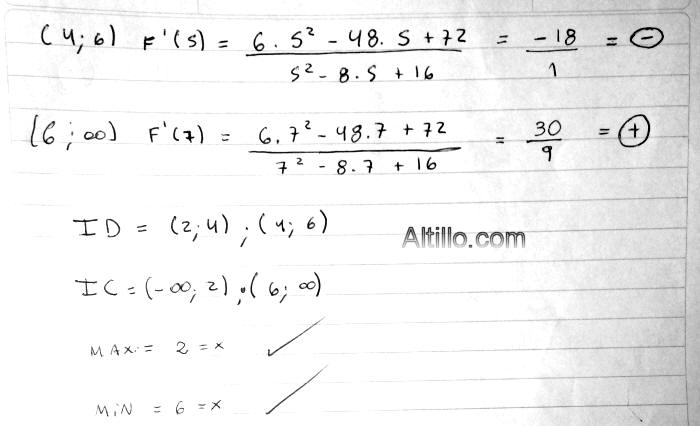 (4; 6) F'(5) = 6. 5² - 48. 5 + 72 / 5² - 8. 5 + 16 = -18 / 1 = ⊖
(6; ∞) F'(7) = 6. 7² - 48. 7 + 72 / 7² - 8. 7 + 16 = 30 / 9 = ⊕
ID = (2; 4) ; (4; 6)
Altillo.com
IC = (-∞; 2) ; (6; ∞)
MAX = 2 = x ✓
MiN = 6 = x ✓